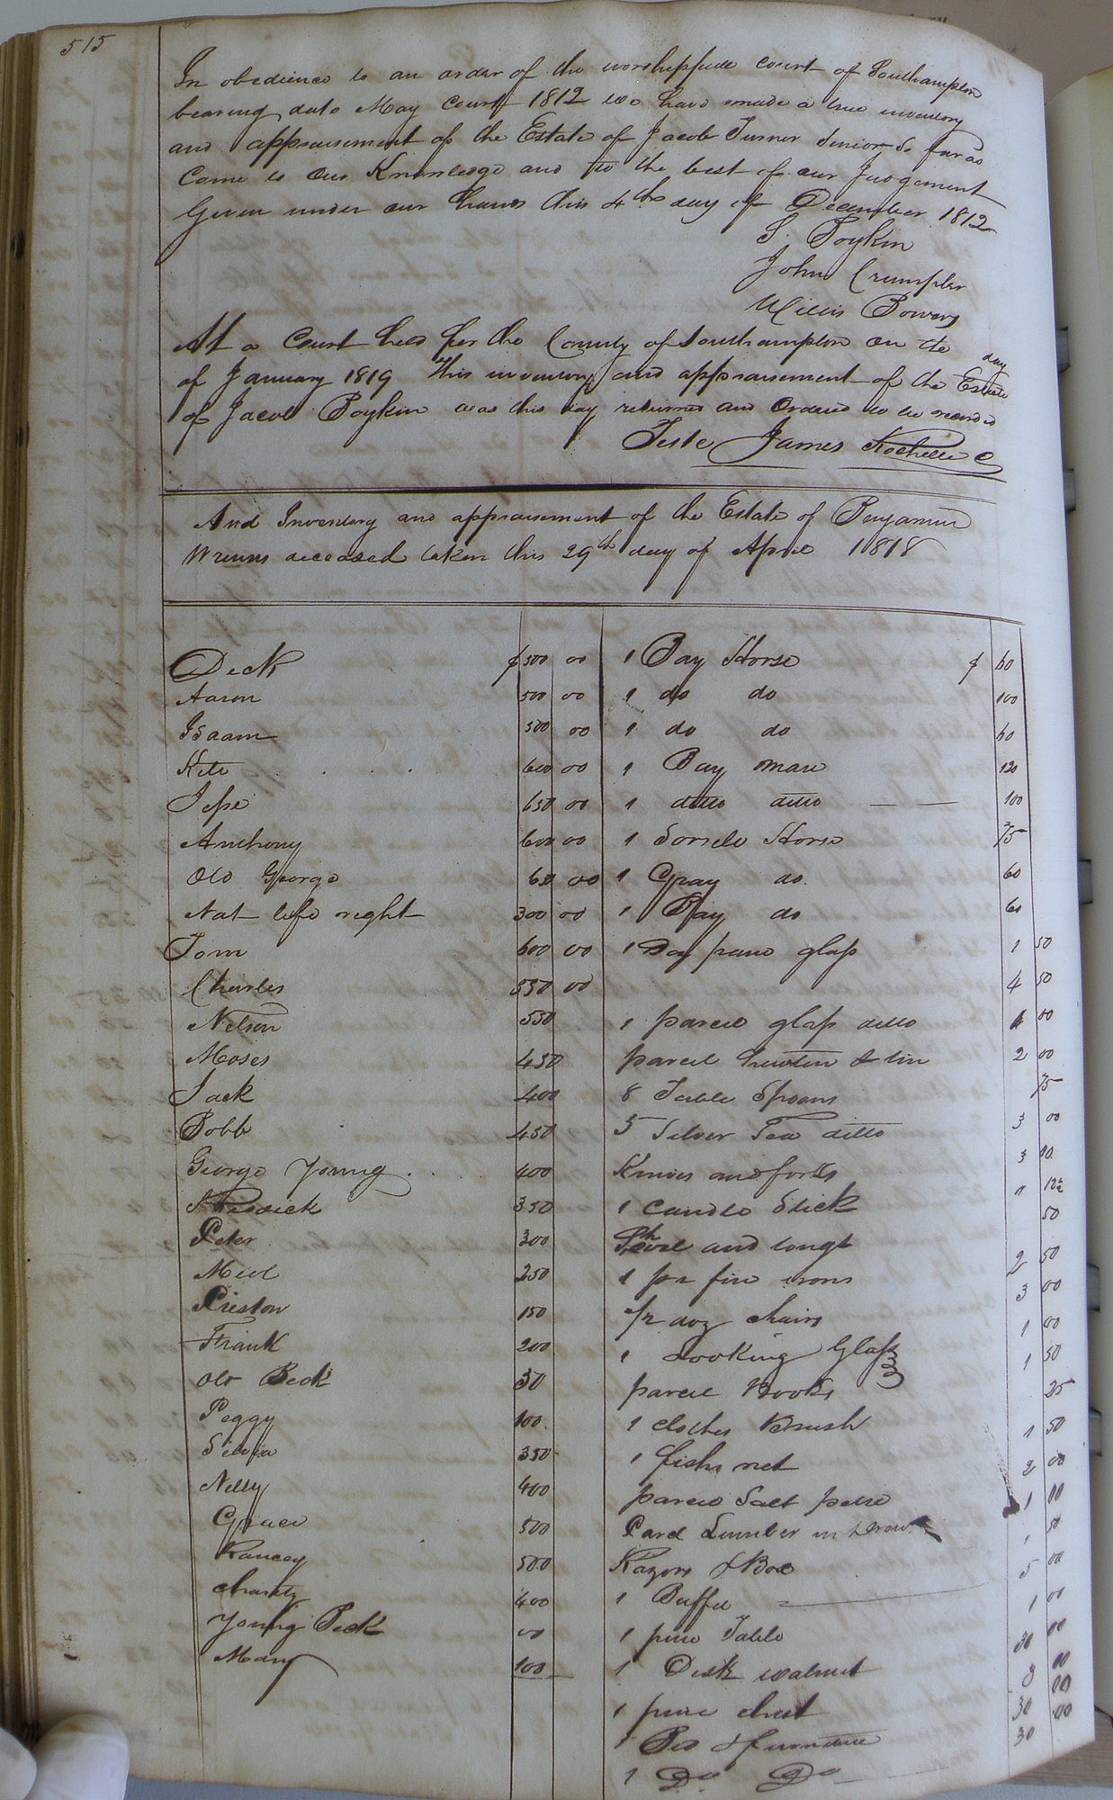 515
In obedience to an order of the worshipfull court of Southampton
bearing date May Court 1812 we have made a true inventory
and appraisement of the Estate of Jacob Turner Senior so far as
Came to our Knowledge and to the best of our Judgement
Given under our hands this 4th day of December 1812
S. Boykin
John Crumpler
Willis Bowers
At a Court held for the County of Southampton on the day
of January 1819 This inventory and appraisement of the Estate
of Jacob Boykin was this day returned and Ordered to be recorded
Teste James Rochelle C
And Inventory and appraisement of the Estate of Benjamin
deceased taken this 29th day of April 1818
Dick $ 500 00 1 Bay Horse $ 60
Aaron 500 00 1 do do 100
Isaam 500 00 1 do do 60
Kitt 600 00 1 Bay mare 120
Jesse 650 00 1 ditto ditto 100
Anthony 600 00 1 Sorrele Horse 75
Old George 650 00 1 Gray do 60
Nat life right 300 00 1 Bay do 60
Tom 600 00 1 pane glass 1 50
Charles 550 00 4 50
Nelson 550 1 parcel glass ditto 00
Moses 450 parcel & tin 2 00
Jack 400 8 Table Spoons 75
Bobb 450 5 Silver Tea ditto 3 00
George Young 400 Knives and forks 3 00
350 1 candle Stick 1 12½
Peter 300 and tongs 50
250 1 pr fire irons 2 50
Preston 150 ½ doz chairs 3 00
Frank 200 1 Looking Glass 1 00
Old Beck 30 parcel Books 1 50
Peggy 100 1 clothes Brush 25
Silvia 350 1 fishe net 1 50
Nelly 400 parcel Salt petre 2 00
Grace 500 Parcel Lumber in 1 00
500 Razors & Box 1 50
Charity 400 1 Buffet 5 00
Young Beck 00 1 pine Table 1 00
Mary 100 1 Desk walnut 30 00
1 pine chest 3 00
1 Bed & furniture 30 00
1 Do Do 30